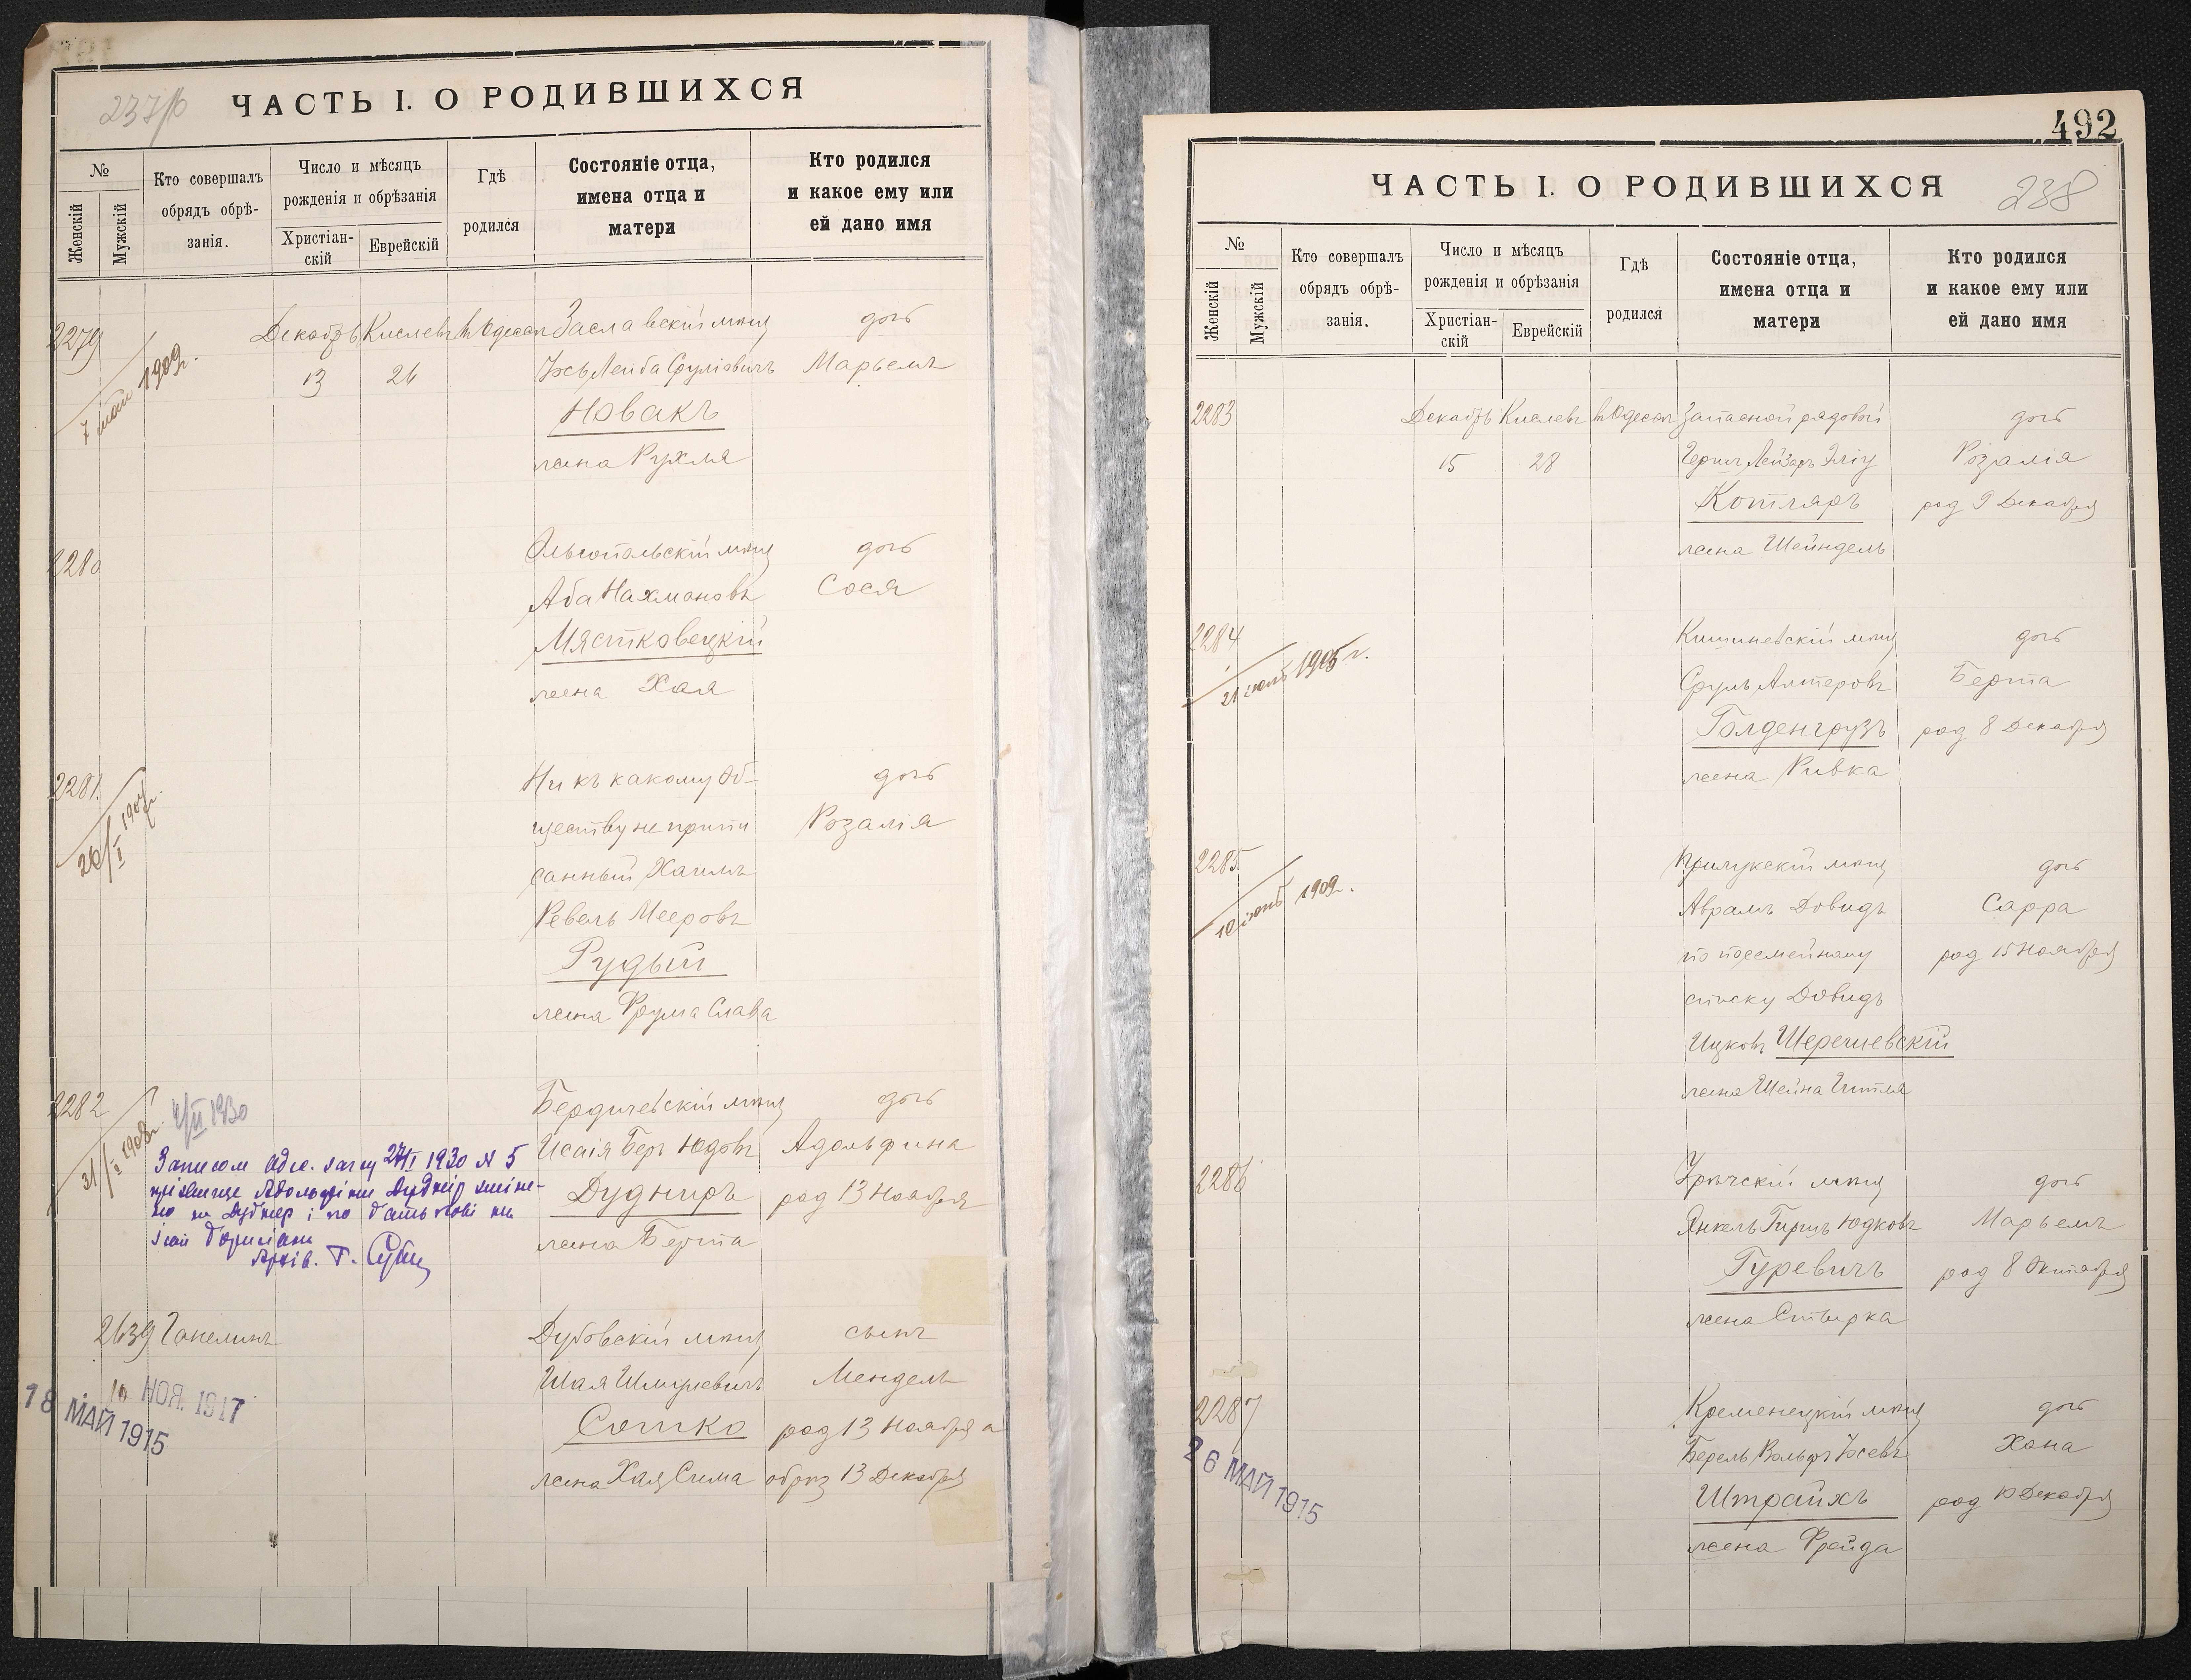 237/б
ЧАСТЬ I. О РОДИВШИХСЯ
№
Женскій
Мужскій
Кто совершалъ
обрядъ обрѣ-
занія.
Число и мѣсяцъ
рожденія и обрѣзанія
Христіан-
скій
Еврейскій
Гдѣ
родился
Состояніе отца,
имена отца и
матери
Кто родился
и какое ему или
ей дано имя
2279
7 мая 1909г.
Декабрь Кислевъ Одесса Заславскій мѣщ дочь
13 26 Іось Лейба Сруліовичъ Марьемъ
Новакъ
жена Рухля
2280 Ольгопольскій мѣщ дочь
Аба Нахмановъ Сося
Мястковецкій
жена Хая
2281 Ни къ какому об- дочь
ществу не припи Розалія
26/I 1904г.
санный Хаимъ
Ревель Мееровъ
Рудый
жена Фрума Слава
2282 Бердичевскій мѣщ дочь
31/I 1908г.
4/II 1930
Исаія Беръ Юдовъ Адольфина
Дудниръ род 13 Ноября
жена Берта
Записом 1930 N 5
прізвище Адольфіни
на Дубнер і по батькові на
Архів. Т.
2639 Гапелинъ Дубовскій мѣщ сынъ
Шая Шмулевичъ Мендель
10 НОЯ. 1917
18 МАЙ 1915
Сотко род 13 Ноября а
жена Хая Сима обрѣз 13 Декабря
492
ЧАСТЬ I. О РОДИВШИХСЯ
238
№
Женскій
Мужскій
Кто совершалъ
обрядъ обрѣ-
занія.
Число и мѣсяцъ
рожденія и обрѣзанія
Христіан-
скій
Еврейскій
Гдѣ
родился
Состояніе отца,
имена отца и
матери
Кто родился
и какое ему или
ей дано имя
2283 Декабрь Кислевъ Одесса Запасной рядовой дочь
15 28 Лейзеръ Розалія
Котляръ род 9 Декабря
жена Шейндель
2284 Кишиневскій мѣщ дочь
21 1905 г.
Сруль Алтеровъ Берта
Голденгрузъ род 8 Декабря
жена Ривка
2285 Прилукскій мѣщ дочь
10 1909г.
Аврамъ Довидъ Сарра
по посемейному род 15 Ноября
списку Довидъ
Ицковъ Шерешевскій
жена Шейна Гитля
2286 мѣщ дочь
Янкель Гиршъ Юдковъ Марьемъ
Гуревичъ род 8 Октября
жена Стырка
2287 Кременецкій мѣщ дочь
26 МАЙ 1915
Берель Вольфъ Іосевъ Хана
Штрайхъ род 10 Декабря
жена Фрейда